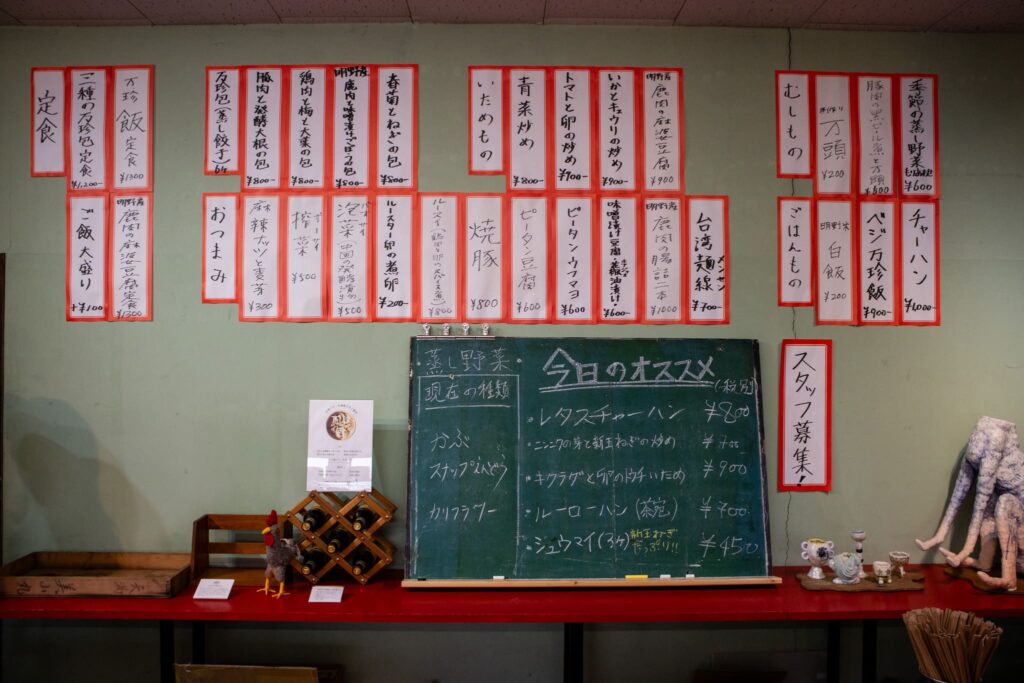 定食
二種の万珍包定食 ¥1,200
万珍飯定食 ¥1300
ご飯大盛り +¥100
鹿肉の麻婆豆腐定食 ¥1300
万珍包(蒸し餃子)6ヶ
豚肉と発酵大根の包 ¥800-
鶏肉と梅と大葉の包 ¥800-
明野産 鹿肉と味噌漬けごぼうの包 ¥800-
春菊とねぎの包 ¥800-
おつまみ
麻辣ナッツと麦芽 ¥300
搾菜 ¥500
泡菜(中国の発酵漬け) ¥500
ルースター卵の煮卵 ¥200-
ルースイ ¥800
焼豚 ¥800
ピータン豆腐 ¥600
ピータンウマヨ ¥600-
味噌漬け豆腐 ¥600-
明野産 鹿肉の腸詰二本 ¥1000
台湾麺線 メンセン ¥700-
いためもの
青菜炒め ¥800-
トマトと卵の炒め ¥900-
いかとキュウリの炒め ¥900-
明野産 鹿肉の麻婆豆腐 ¥900
むしもの
万頭 ¥200
豚肉の黒ビール煮と万頭 ¥800
季節の蒸し野菜 ¥600
ごはんもの
明野米 白飯 ¥200
ベジ万珍飯 ¥900-
チャーハン ¥1,000-
スタッフ募集!
蒸し野菜
現在の種類
かぶ
スナップえんどう
カリフラワー
今日のオススメ
(税別)
・レタスチャーハン ¥800
・ニンニクの芽と新玉ねぎの炒め ¥700
・キクラゲと卵のトウチいため ¥900
・ルーローハン(茶碗) ¥700
・ジュウマイ(3ヶ) 新玉ねぎたっぷり!! ¥450